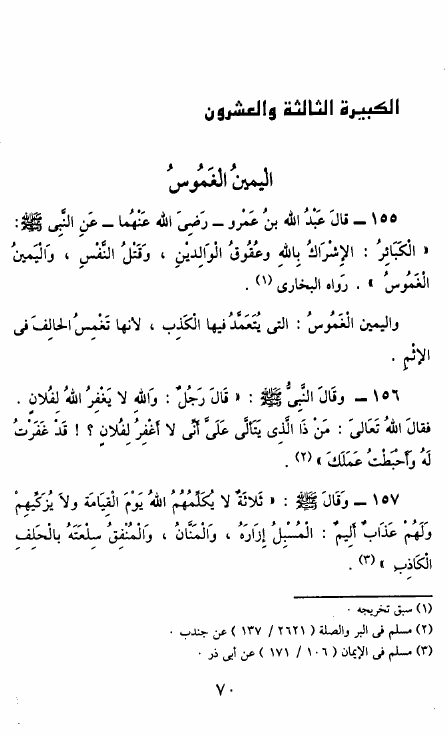 الكبيرة الثالثة والعشرون
اليمينُ الغَمُوسُ
١٥٥ ــ قالَ عَبْدُ الله بنُ عَمْرو ــ رَضِىَ اللهُ عَنْهُما ــ عَنِ النَّبِى ﷺ :
« الْكَبَائِرُ : الإِشْرَاكُ بِاللهِ وعُقُوقُ الْوَالِدِيْنِ ، وَقَتْلُ النَّفْسِ ، وَالْيَمينُ
الْغَمُوسُ » . رَواه البخارى (١) .
واليمين الْغَمُوسُ : التى يُتَعَمَّدُ فيها الْكَذِب ، لأنها تَغْمِسُ الحالِفَ فى
الإثْمِ .
١٥٦ ــ وقَالَ النَّبِىُّ ﷺ : « قَالَ رَجُلٌ : وَاللهِ لا يَغْفِرُ اللهُ لِفُلانٍ .
فقالَ اللهُ تَعَالَى : مَنْ ذَا الَّذِى يَتَأَلَّى عَلَىَّ أَنِّى لا أَغْفِرُ لِفُلانٍ ؟ ! قَدْ غَفَرْتُ
لَهُ وَأَحْبَطْتُ عَمَلَكَ » (٢) .
١٥٧ ــ وَقَالَ ﷺ : « ثَلاثَةٌ لا يُكَلِّمُهُمُ اللهُ يَوْمَ الْقِيَامَةِ ولاَ يُزَكِّيهِمْ
وَلَهُمْ عَذَابٌ أَلِيمٌ : الْمُسْبِلُ إِزَارَهُ ، وَالْمَنَّانُ ، وَالْمُنْفِقُ سِلْعَتَهُ بالْحَلِفِ
الْكَاذِبِ » (٣) .
(١) سبق تخريجه .
(٢) مسلم فى البر والصلة ( ٢٦٢١ / ١٣٧ ) عن جندب .
(٣) مسلم فى الإيمان ( ١٠٦ / ١٧١ ) عن أبى ذر .
٧٠